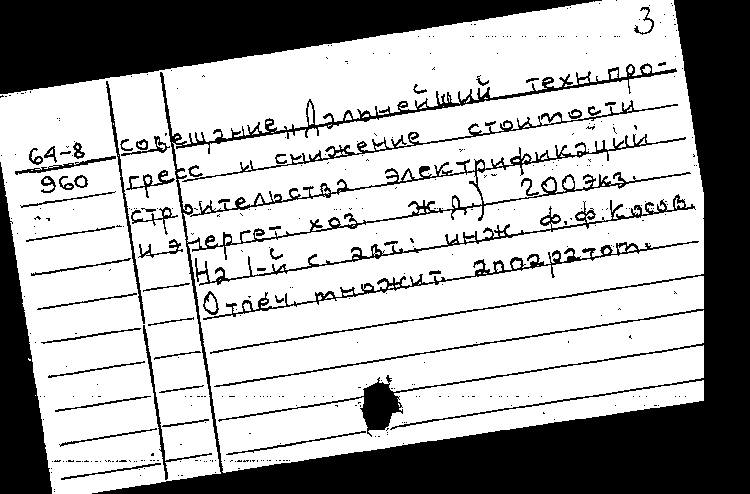 3
64-8
960
совещание „Дальнейший техн. про-
гресс и снижение стоимости
строительства электрификаций
и энергет. хоз. ж.д.) 200 экз.
На 1-й с. авт.: инж. Ф.Ф. Косов.
Отпеч. множит. аппаратом.